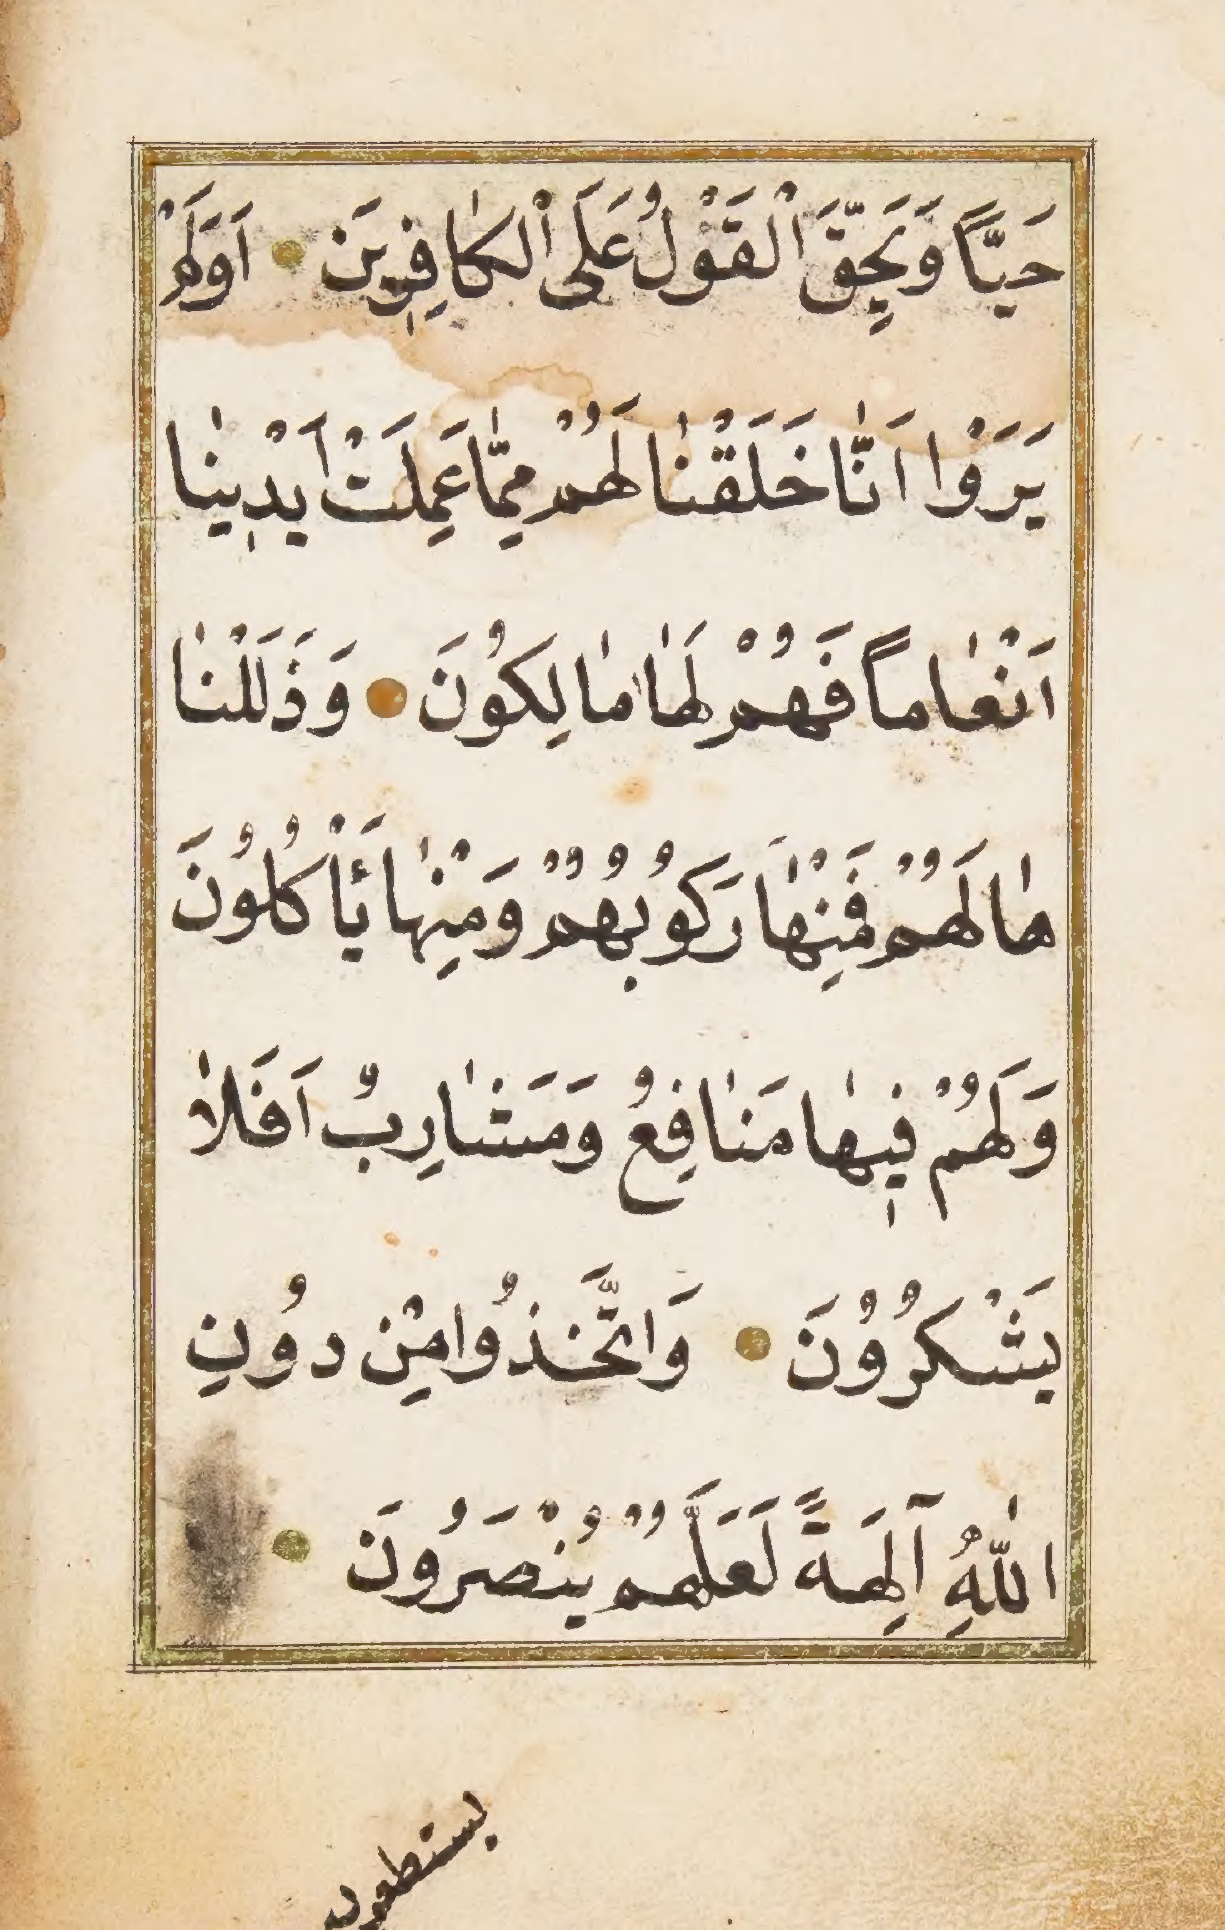 حَيًّا وَيَحِقَّ الْقَوْلُ عَلَى الْكٰافِرِينَ ۝ اَوَلَمْ
يَرَوْا اَنّٰا خَلَقْنٰا لَهُمْ مِمّٰا عَمِلَتْ اَيْدِينٰا
اَنْعٰاماً فَهُمْ لَهٰا مٰالِكُونَ ۝ وَذَلَّلْنٰا
هٰا لَهُمْ فَمِنْهٰا رَكُوبُهُمْ وَمِنْهٰا يَأْكُلُونَ
وَلَهُمْ فِيهٰا مَنٰافِعُ وَمَشٰارِبُ اَفَلاٰ
يَشْكُرُونَ ۝ وَاتَّخَذُوا مِنْ دُونِ
اللّٰهِ آلِهَةً لَعَلَّهُمْ يُنْصَرُونَ ۝
يستطعون